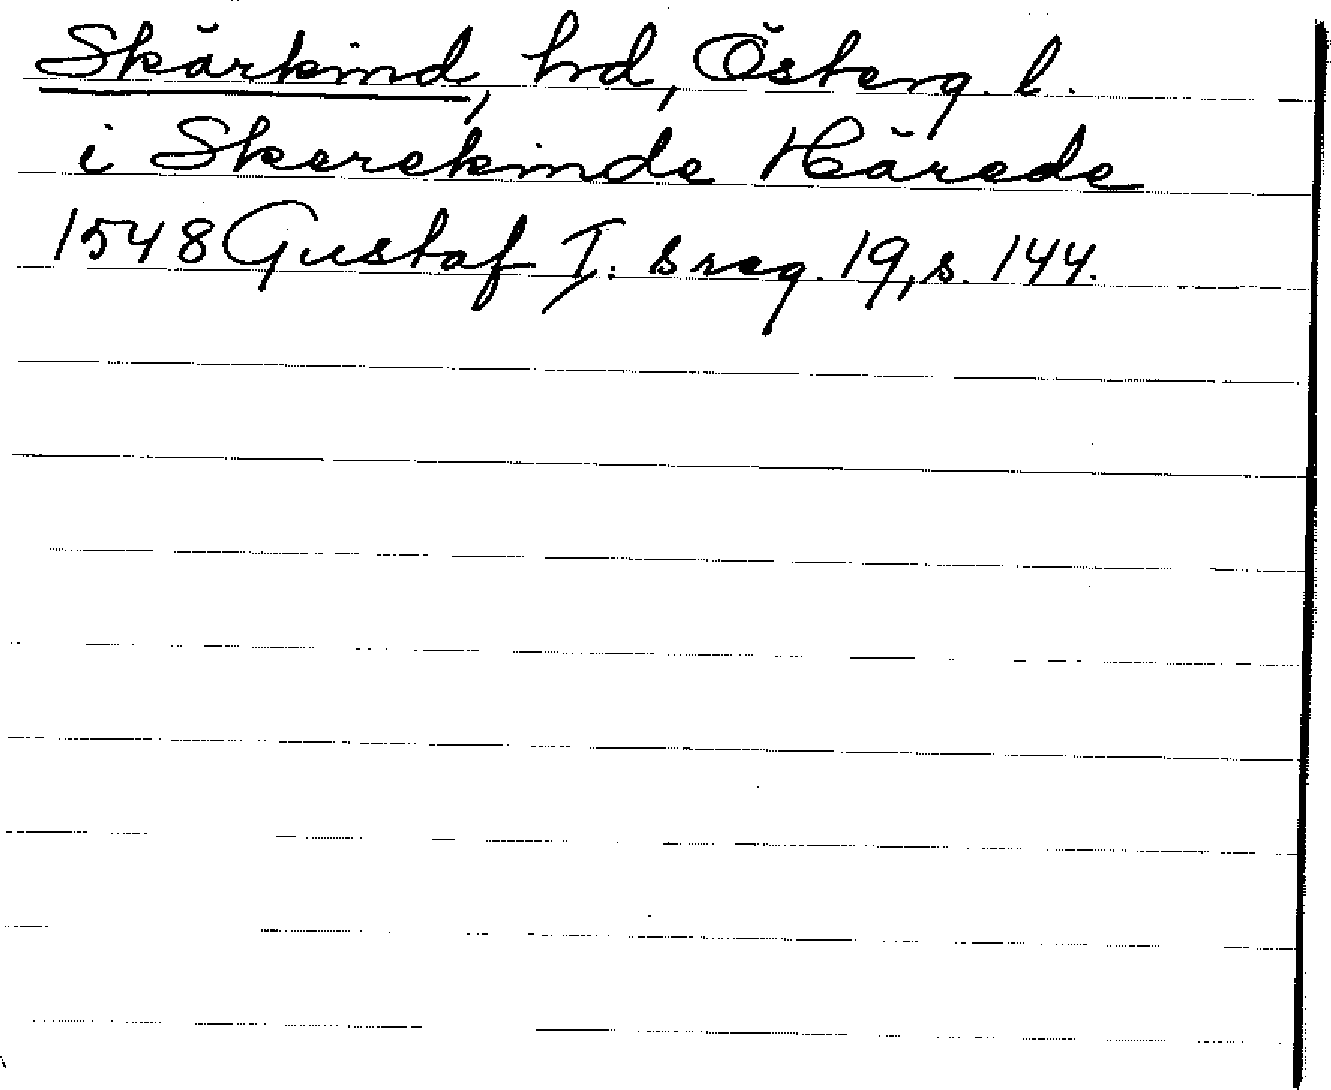 Skärkind, hrd, Österg. l.
i Skerekinde Härede
1548 Gustaf I: s reg. 19, s. 144.